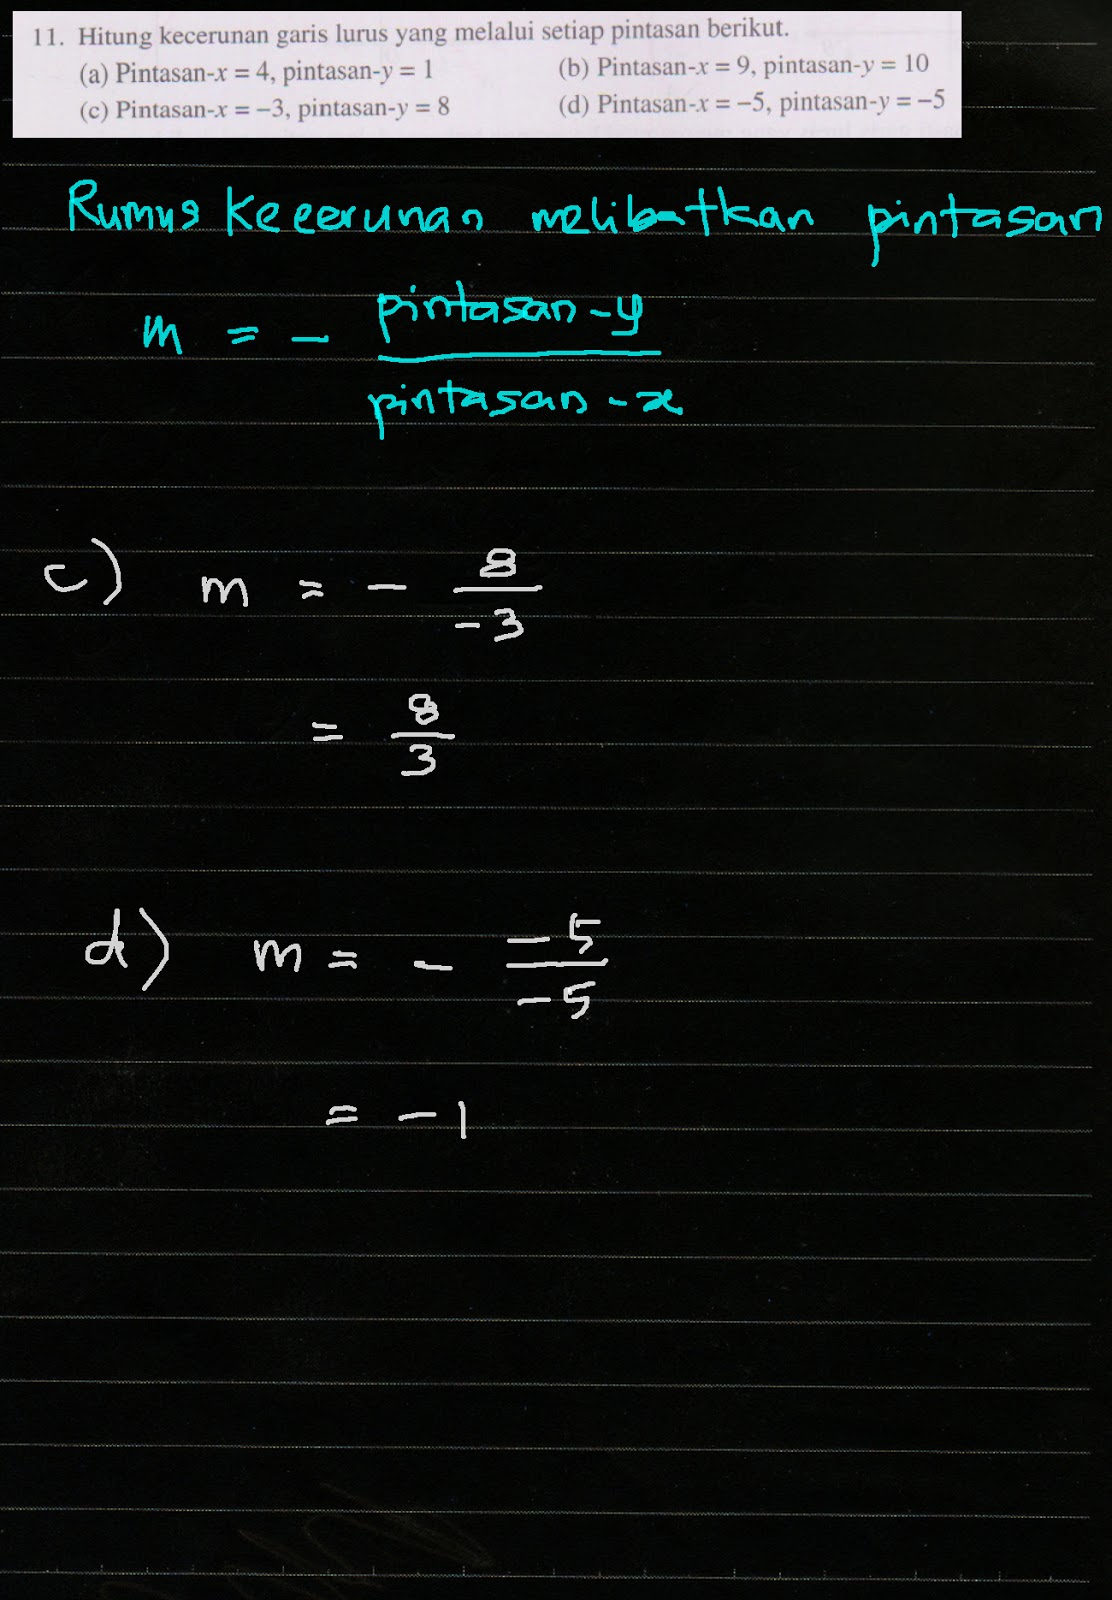 11. Hitung kecerunan garis lurus yang melalui setiap pintasan berikut.
(a) Pintasan-x = 4, pintasan-y = 1
(b) Pintasan-x = 9, pintasan-y = 10
(c) Pintasan-x = −3, pintasan-y = 8
(d) Pintasan-x = −5, pintasan-y = −5
Rumus kecerunan melibatkan pintasan
m = - pintasan-y / pintasan-x
c) m = - 8 / -3
= 8 / 3
d) m = - -5 / -5
= -1